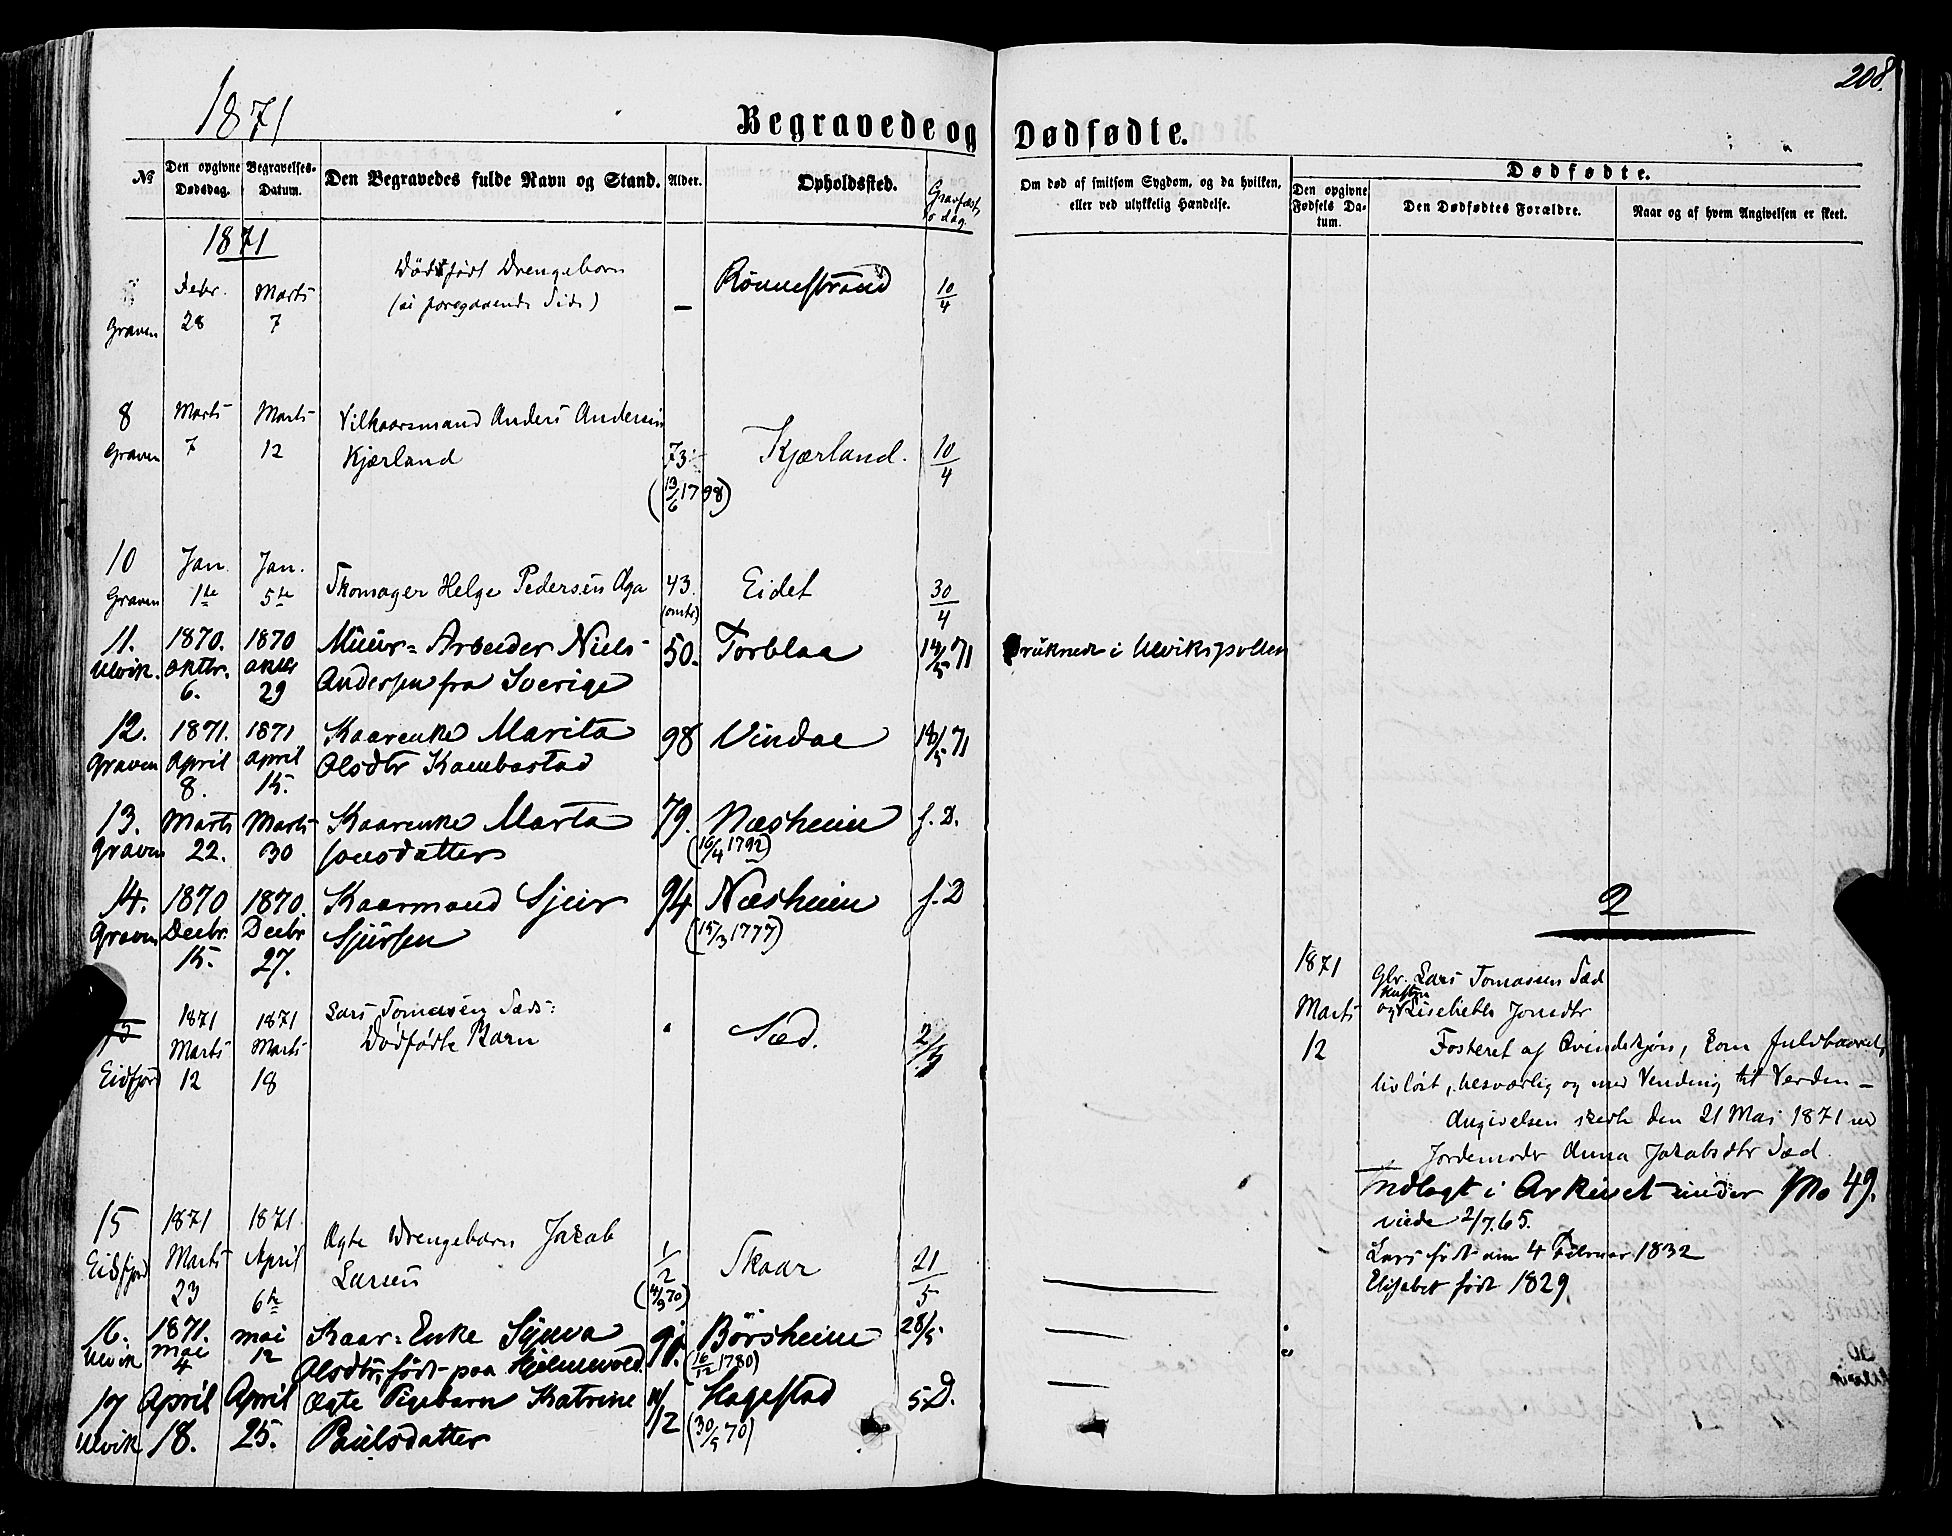 208.
1871
Begravede og Dødfødte.
№
Den opgivne Dødsdag.
Begravelses-Datum.
Den Begravedes fulde Navn og Stand.
Alder.
Opholdssted.
Om død af smitsom Sygdom, og da hvilken, eller ved ulykkelig Hændelse.
Dødfødte.
Den opgivne Fødsels Datum.
Den Dødfødtes Forældre.
Naar og af hvem Angivelsen er skeet.
1871
Graven
Febr. 28
Marts 7
Dødfødt Drengebarn
(se foregaaende Side)
—
Rønnestrand
10/4
8
Graven
Marts 7
Marts 12
Vilkaarsmand Anders Andersen
Kjærland
73
(13/6 1798)
Kjærland.
10/4
10
Graven
Jan. 1te
Jan. 5te
Skomager Helge Pedersen Aga
43.
(omtr)
Eidet
30/4
11.
Ulvik.
1870. Oktbr. 6.
1870 29
Muur-Arbeider Niels
Andersen fra Sverige
50.
Torblaa
14/5 71
Druknede i Ulvikspollen
12.
Graven
1871. April 8.
1871 April 15.
Kaarenke Marita
Olsdtr Kambastad
98
Vindae
18/5 71
13.
Graven
Marts 22.
Marts 30
Kaarenke Marta
Jonsdatter
79.
Næsheim
(16/4 1792)
s. D.
14.
Graven
1870 Decbr. 15.
1870. Decbr 27.
Kaarmand Sjur
Sjursen
94
Næsheim
(15/3 1777)
s. D
2
Eidfjord
1871 Marts 12
1871 Marts 18
Lars Tomasen Sæds:
Dødfødte Barn
Sæd.
2/5
1871
Marts
12
Gbr. Lars Tomasen Sæd
Hustru
og Lisebeth Jonsdtr
Fosteret af Qvindekjøn, kom fuldbaaret,
livløst, besværlig og med Vending til Verden —
Angivelsen skede den 21 Mai 1871 ved
Jordemoder Anna Jakobsdtr Sæd.
Indlagt i Arkivet under No 49.
viede 2/7.65.
Lars født den 4 Februar 1832
Elisabet født 1829.
15
Eidfjord
1871 Marts 23
1871 April 6te
Ægte Drengebarn Jakob
Larsen
1/2
(4/9 70)
Skaar
21/5
16.
Ulvik
1871. Mai 4
Mai 12
Kaar-Enke Synva
Olsdtr, født paa Hjelmevold.
90.
Børsheim
(16/12 1780)
28/5
17
Ulvik
April 18.
April 25.
Ægte Pigebarn Katrine
Paulsdatter
11/12
Hagestad
(30/5 70)
s D.